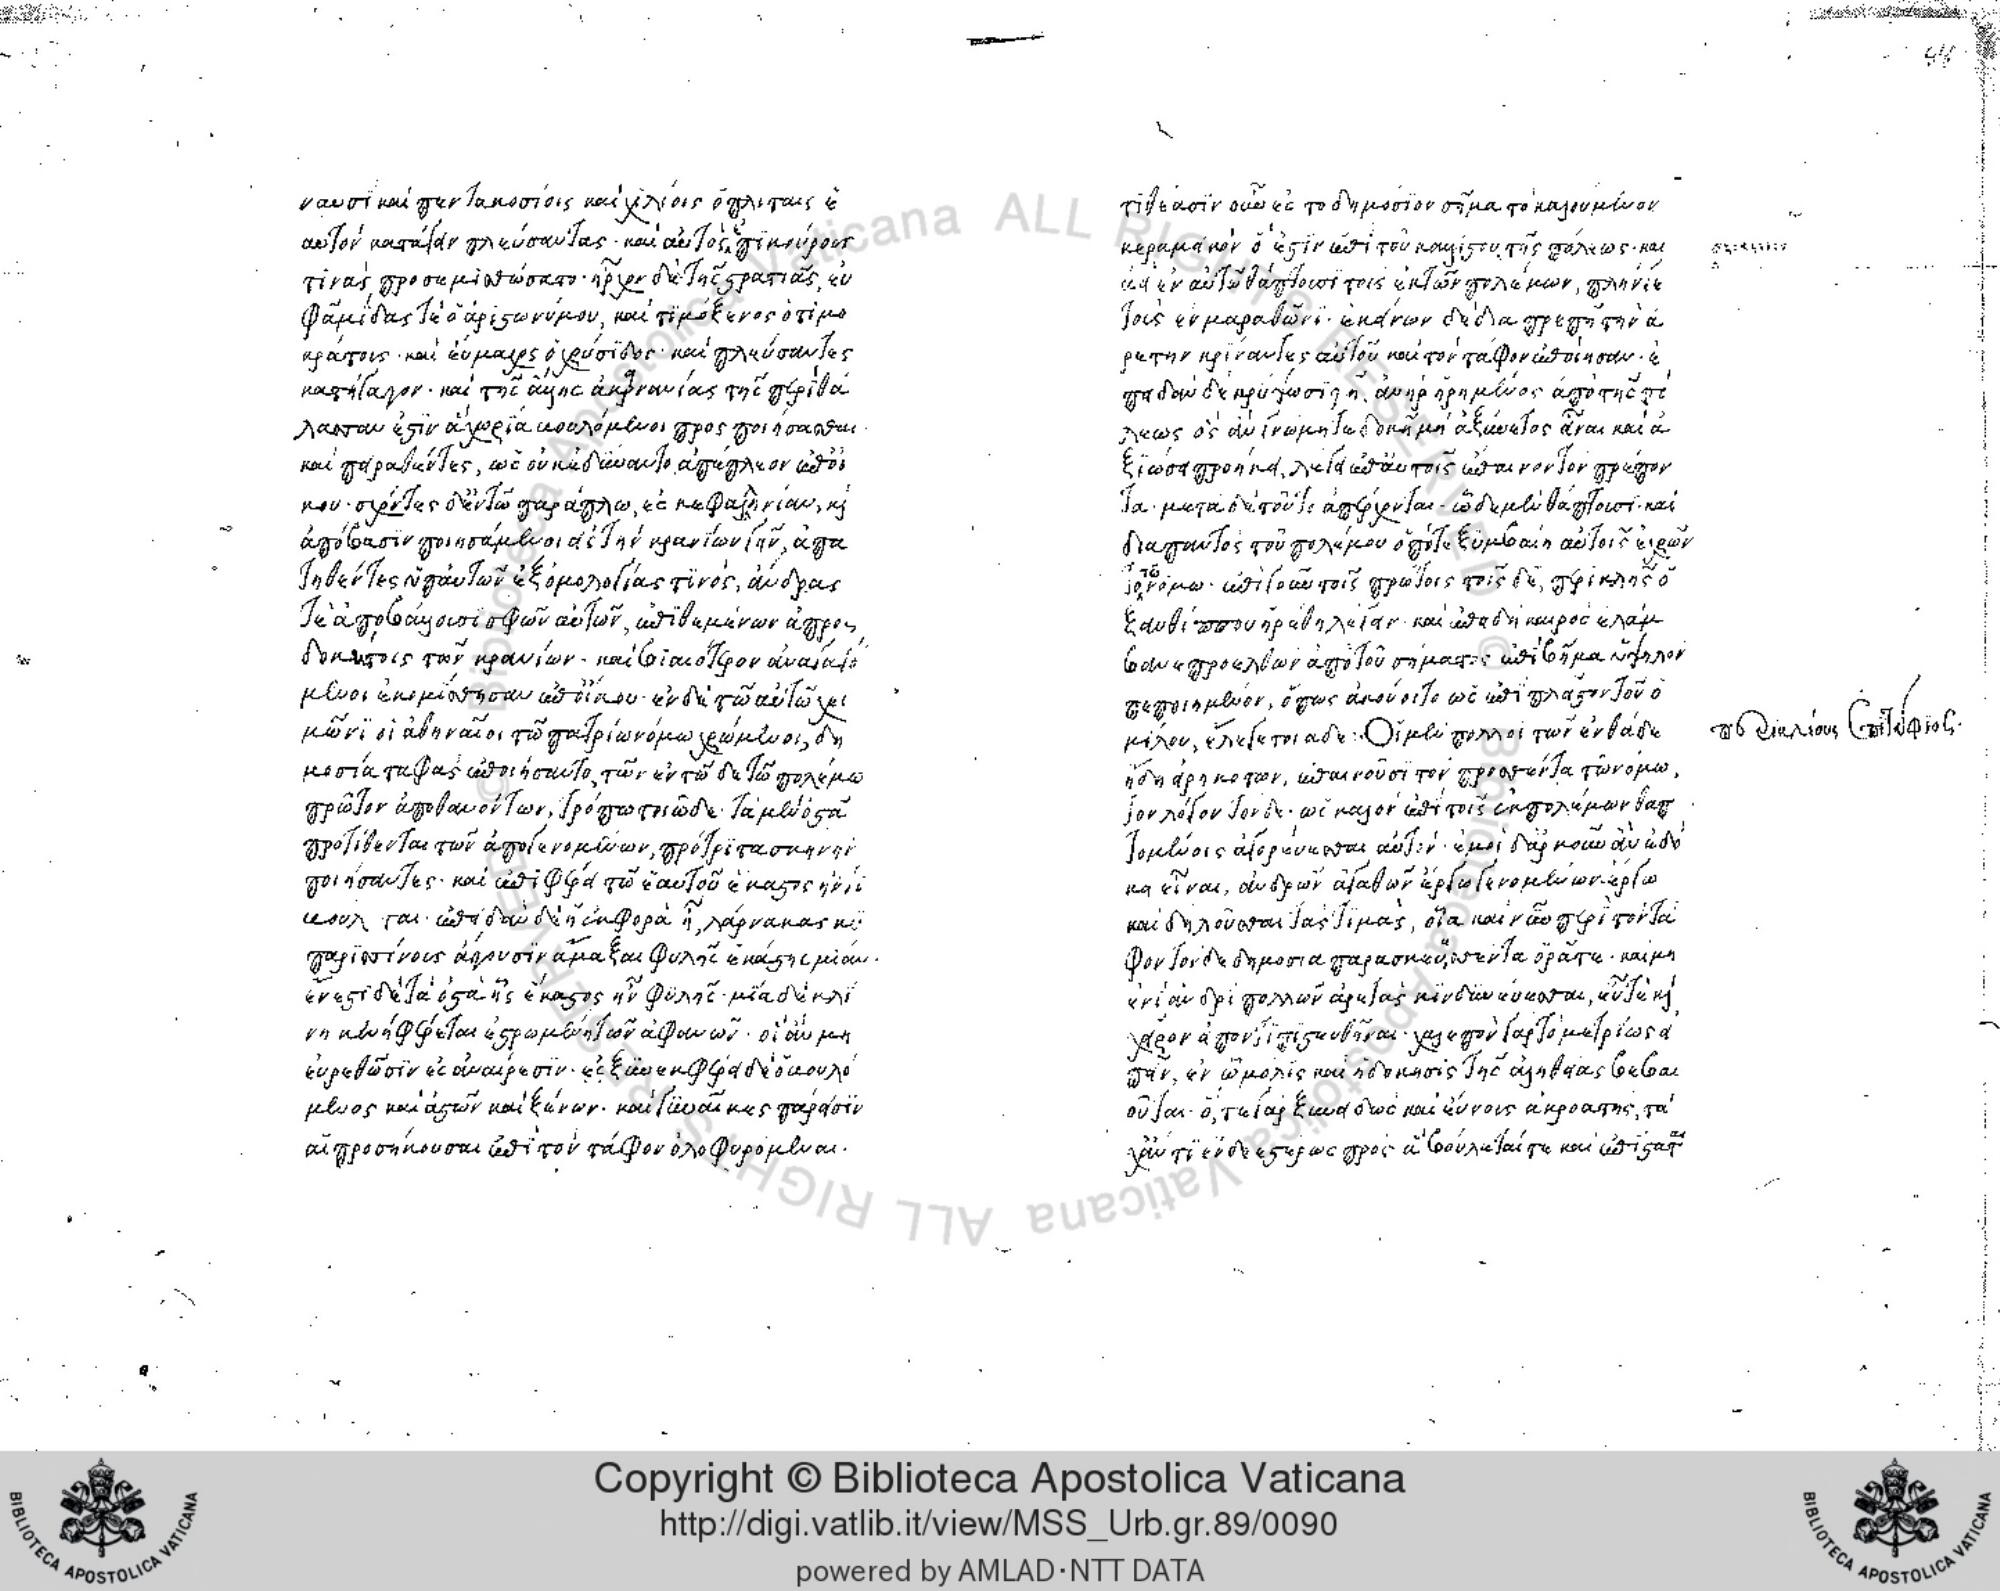 ναυσὶ καὶ πεντακοσίοις καὶ χιλίοις ὁπλίταις ἑ
αυτὸν κατάγειν πλεύσαντας· καὶ αὐτὸς ἐπικούρους
τινὰς προσεμισθώσατο· ἦρχον δὲ τῆς στρατιᾶς, εὐ
φαμίδας τὲ ὁ ἀριστωνύμου, καὶ τιμόξενος ὁ τιμο
κράτους· καὶ εὔμαχος ὁ χρύσιδος· καὶ πλεύσαντες
κατήγαγον· καὶ τῆς ἄλλης ἀκαρνανίας τῆς περὶ θά
λασσαν ἔστιν ἃ χωρία βουλόμενοι προσποιήσασθαι·
καὶ πειραθέντες, ὡς οὐκ ἐδύναντο ἀπέπλεον ἐπ' οἴ
κου· σχόντες δ' ἐν τῶ παράπλω, ἐς κεφαλληνίαν, κὶ
ἀπόβασιν ποιησάμενοι ἐς τὴν κρανίων γῆν, ἀπα
τηθέντες ὑπ' αὐτῶν ἐξ ὁμολογίας τινὸς, ἄνδρας
τὲ ἀποβάλλουσι σφῶν αὐτῶν, ἐπιθεμένων ἀπροσ
δοκήτοις τῶν κρανίων· καὶ βιαιότερον ἀναγαγό
μενοι ἐκομίσθησαν ἐπ' οἴκου· ἐν δὲ τῶ αὐτῶ χει
μῶνι οἱ ἀθηναῖοι τῶ πατρίω νόμω χρώμενοι, δη
μοσία ταφὰς ἐποιήσαντο, τῶν ἐν τῶ δε τῶ πολέμω
πρῶτον ἀποθανόντων, τρόπω τοιῶδε· τὰ μὲν ὀστᾶ
προτίθενται τῶν ἀπογενομένων, πρότριτα σκηνὴν
ποιήσαντες· καὶ ἐπιφέρει τῶ ἑαυτοῦ ἕκαστος ἤν τι
βούληται· ἐπειδὰν δὲ ἡ ἐκφορὰ ἦ, λάρνακας κυ
παρισσίνους ἄγουσιν ἅμαξαι φυλῆς ἑκάστης μίαν·
ἔνεστι δὲ τὰ ὀστὰ ἧς ἕκαστος ἦν φυλῆς· μία δὲ κλί
νη κενὴ φέρεται ἐστρωμένη τῶν ἀφανῶν· οἳ ἂν μὴ
εὑρεθῶσιν ἐς ἀναίρεσιν· ξυνεκφέρει δὲ ὁ βουλό
μενος καὶ ἀστῶν καὶ ξένων· καὶ γυναῖκες πάρεισιν
αἱ προσήκουσαι ἐπὶ τὸν τάφον ὀλοφυρόμεναι·
τιθέασιν οὖν ἐς τὸ δημόσιον σῆμα τὸ καλούμενον
κεραμεικὸν ὅ ἐστιν ἐπὶ τοῦ καλλίστου τῆς πόλεως· καὶ
ἀεὶ ἐν αὐτῶ θάπτουσι τοὺς ἐκ τῶν πολέμων, πλήν γε
τοὺς ἐν μαραθῶνι· ἐκείνων δὲ διαπρεπῆ τὴν ἀ
ρετὴν κρίναντες αὐτοῦ καὶ τὸν τάφον ἐποίησαν· ἐ
πειδὰν δὲ κρύψωσι γῆ, ἀνὴρ ἡρημένος ἀπὸ τῆς πό
λεως ὃς ἂν γνώμη τε δοκῆ μὴ ἀξύνετος εἶναι καὶ ἀ
ξιώσει προήκει, λέγει ἐπ' αὐτοῖς ἔπαινον τὸν πρέπον
τα· μετὰ δὲ τοῦτο ἀπέρχονται· ὧδε μὲν θάπτουσι· καὶ
διαπαντὸς τοῦ πολέμου ὁπότε ξυμβαίη αὐτοῖς ἐχρῶν
το τῶ νόμω· ἐπὶ γοῦν τοῖς πρώτοις τοῖς δὲ, περικλῆς ὁ
ξανθίππου ἡρέθη λέγειν· καὶ ἐπειδὴ καιρὸς ἐλάμ
βανε προελθὼν ἀπὸ τοῦ σήματος ἐπὶ βῆμα ὑψηλὸν
πεποιημένον, ὅπως ἀκούοιτο ὡς ἐπὶ πλεῖστον τοῦ ὁ
μίλου, ἔλεγε τοιάδε:· Οἱ μὲν πολλοὶ τῶν ἐνθάδε
περικλέους ἐπιτάφιος·
ἤδη εἰρηκότων, ἐπαινοῦσι τὸν προσθέντα τῶ νόμω,
τὸν λόγον τόνδε· ὡς καλὸν ἐπὶ τοῖς ἐκ πολέμων θαπ
τομένοις ἀγορεύεσθαι αὐτὸν· ἐμοὶ δ' ἀρκοῦν ἂν ἐδό
κει εἶναι, ἀνδρῶν ἀγαθῶν ἔργω γενομένων ἔργω
καὶ δηλοῦσθαι τὰς τιμὰς, οἷα καὶ νῦν περὶ τὸν τά
φον τόνδε δημοσία παρασκευασθέντα ὁρᾶτε· καὶ μὴ
ἐν ἑνὶ ἀνδρὶ πολλῶν ἀρετὰς κινδυνεύεσθαι, εὖ τε κὶ
χεῖρον εἰπόντι πιστευθῆναι· χαλεπὸν γὰρ τὸ μετρίως εἰ
πεῖν, ἐν ὧ μόλις καὶ ἡ δόκησις τῆς ἀληθείας βεβαι
οῦται· ὅ, τε γὰρ ξυνειδὼς καὶ εὔνους ἀκροατὴς, τά
χ' ἄν τι ἐνδεεστέρως πρὸς ἃ βούλεταί τε καὶ ἐπίστατ
Copyright © Biblioteca Apostolica Vaticana
http://digi.vatlib.it/view/MSS_Urb.gr.89/0090
powered by AMLAD·NTT DATA